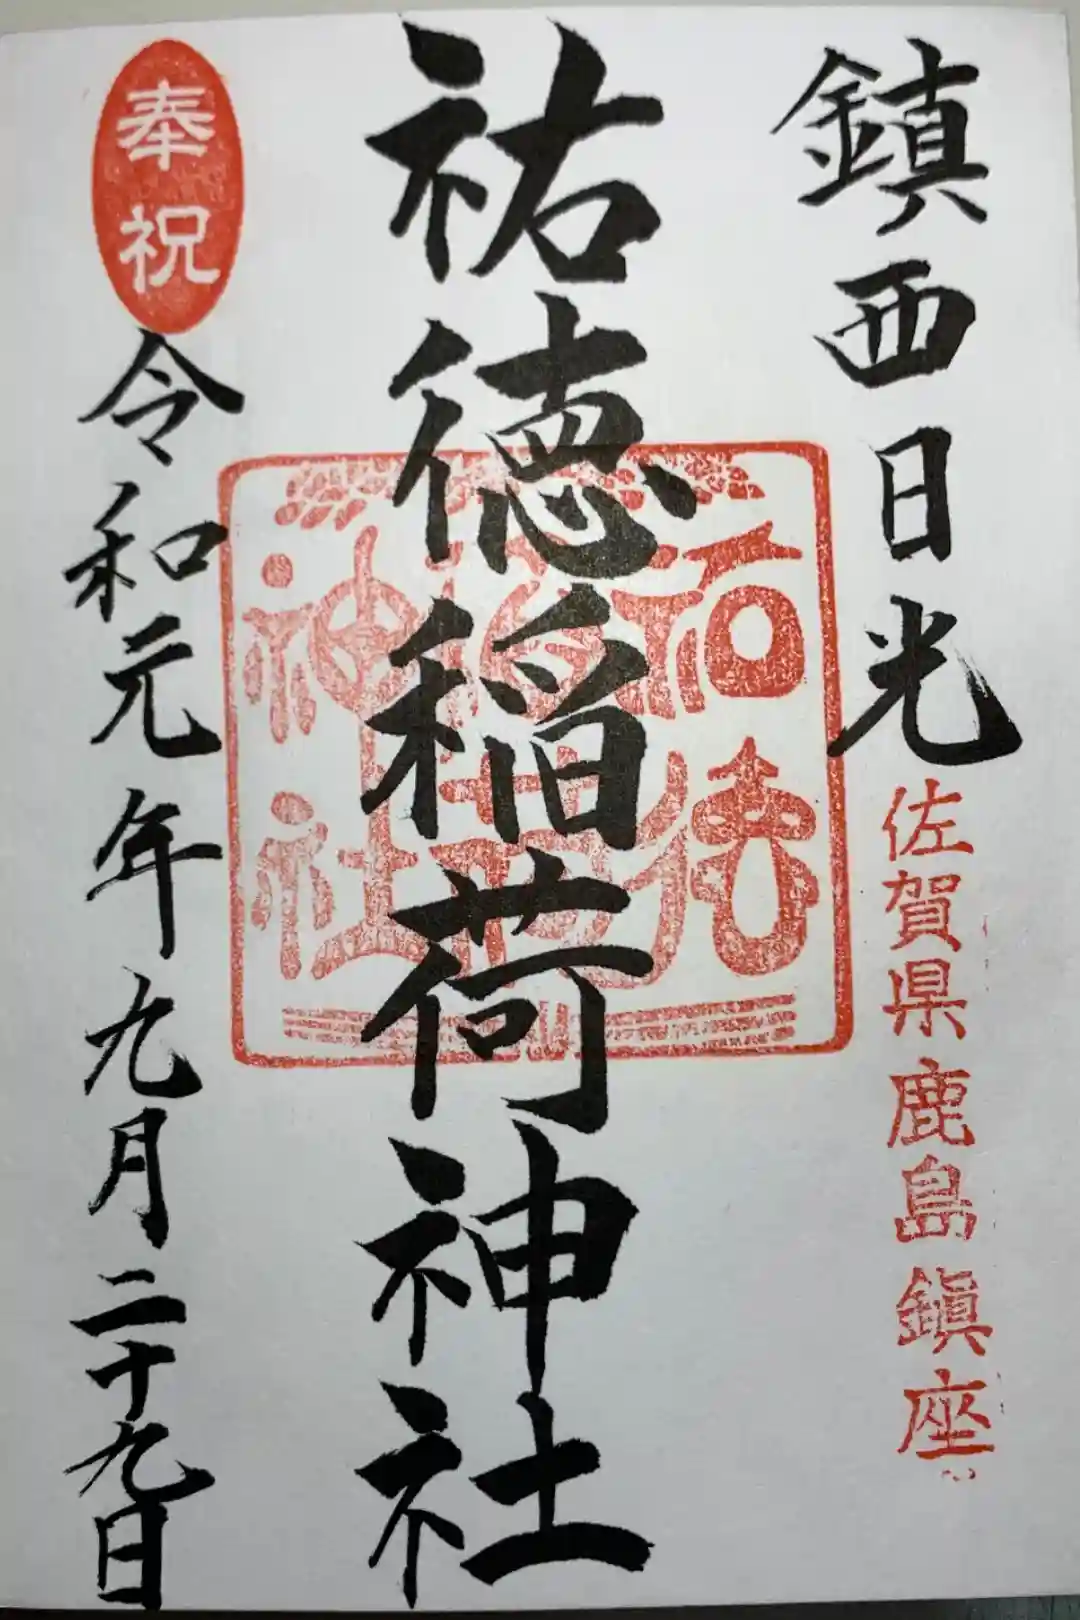 鎮西日光
佐賀県鹿島鎮座
祐徳稲荷神社
祐徳
稲荷
神社
奉祝
令和元年九月二十九日